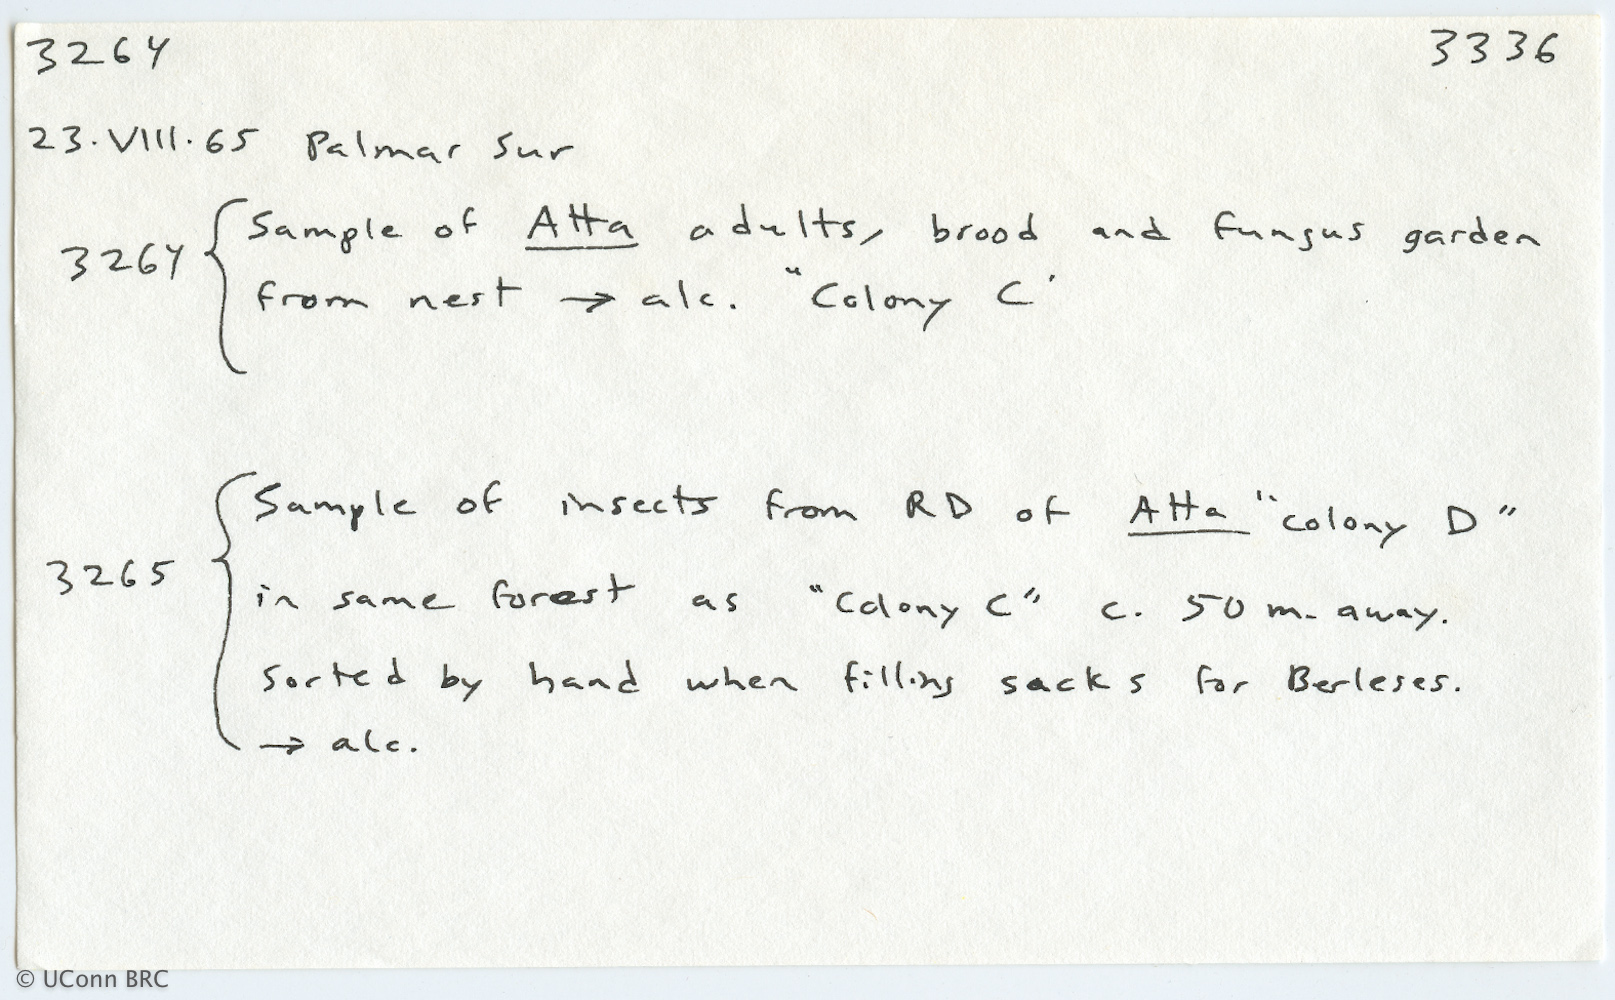 3264 3336
23.VIII.65 Palmar Sur
3264 { Sample of Atta adults, brood and fungus garden
from nest → alc. "Colony C'
3265 { Sample of insects from RD of Atta "colony D"
in same forest as "Colony C" c. 50 m. away.
Sorted by hand when filling sacks for Berleses.
→ alc.
© UConn BRC